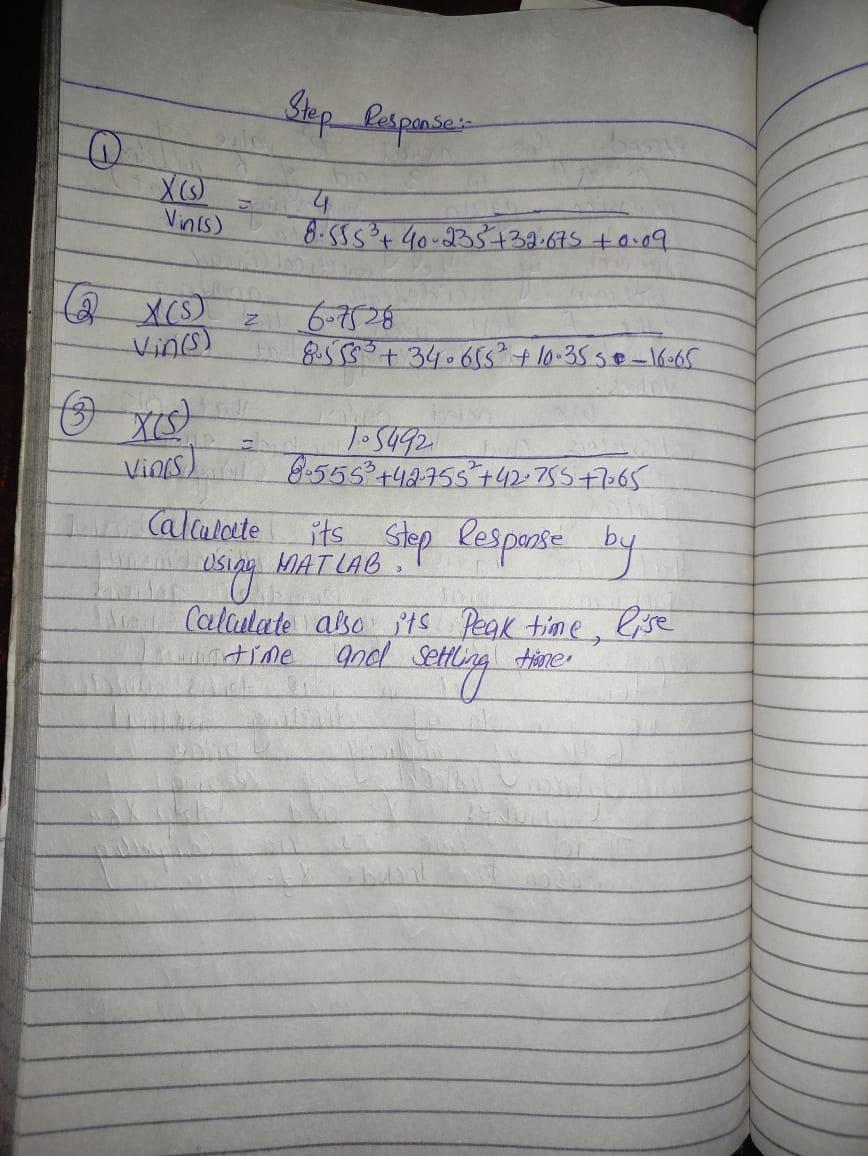 Step Response:-
①
X(s) / Vin(s) = 4 / 8.55s³ + 40.23s² + 32.67s + 0.09
② X(s) / Vin(s) = 6.7528 / 8.55s³ + 34.65s² + 10.35s - 16.65
③ X(s) / Vin(s) = 1.5492 / 8.55s³ + 42.75s² + 42.75s + 7.65
Calculate its Step Response by
using MATLAB.
Calculate also its Peak time, Rise
time and settling time.